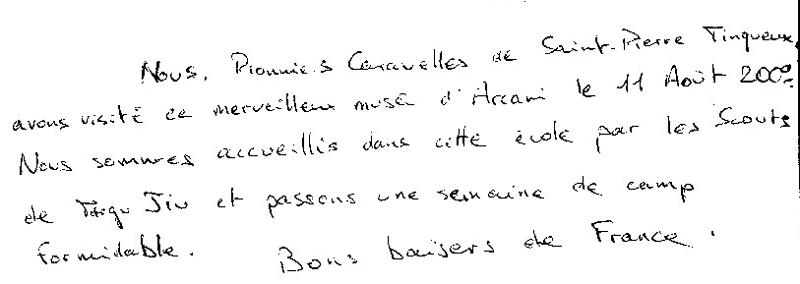 Nous, Pionniers Caravelles de Saint-Pierre Tinqueux,
avons visité ce merveilleux musé d'Arcani le 11 Août 2009.
Nous sommes accueillis dans cette école par les Scouts
de Târgu Jiu et passons une semaine de camp
formidable. Bons baisers de France.